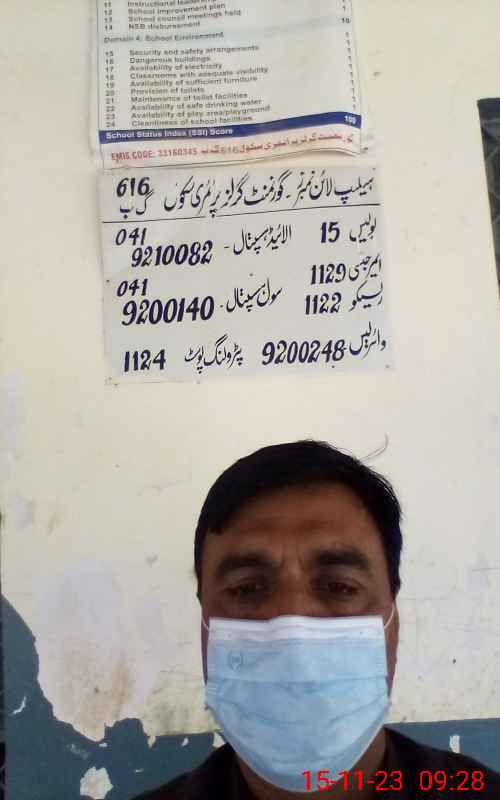 11 Instructional leadership
12 School improvement plan 1
13 School council meetings held 1
14 NSB disbursement 10
Domain 4: School Environment
15 Security and safety arrangements 1
16 Dangerous buildings 1
17 Availability of electricity 1
18 Classrooms with adequate visibility 1
19 Availability of sufficient furniture 1
20 Provision of toilets 1
21 Maintenance of toilet facilities 1
22 Availability of safe drinking water 1
23 Availability of play area/playground 1
24 Cleanliness of school facilities 1
School Status Index (SSI) Score 100
EMIS CODE: 33160345 گورنمنٹ گرلز پرائمری سکول 616 گ ب
ہیلپ لائن نمبرز۔ گورنمنٹ گرلز پرائمری سکول 616 گ ب
پولیس 15 الائیڈ ہسپتال۔ 041 9210082
ایمرجنسی 1129
ریسکیو 1122 سول ہسپتال۔ 041 9200140
وائرلیس 9200248 پٹرولنگ پوسٹ 1124
15-11-23 09:28